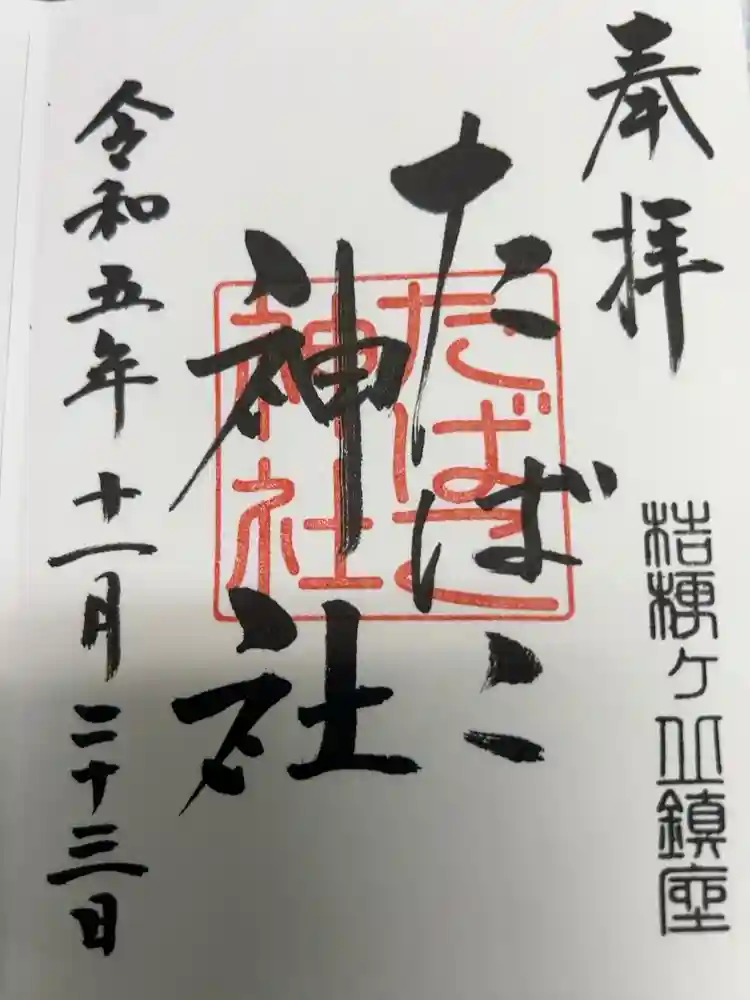 奉拝
桔梗ヶ丘鎮座
たばこ
神社
たばこ
神社
令和五年十一月二十三日